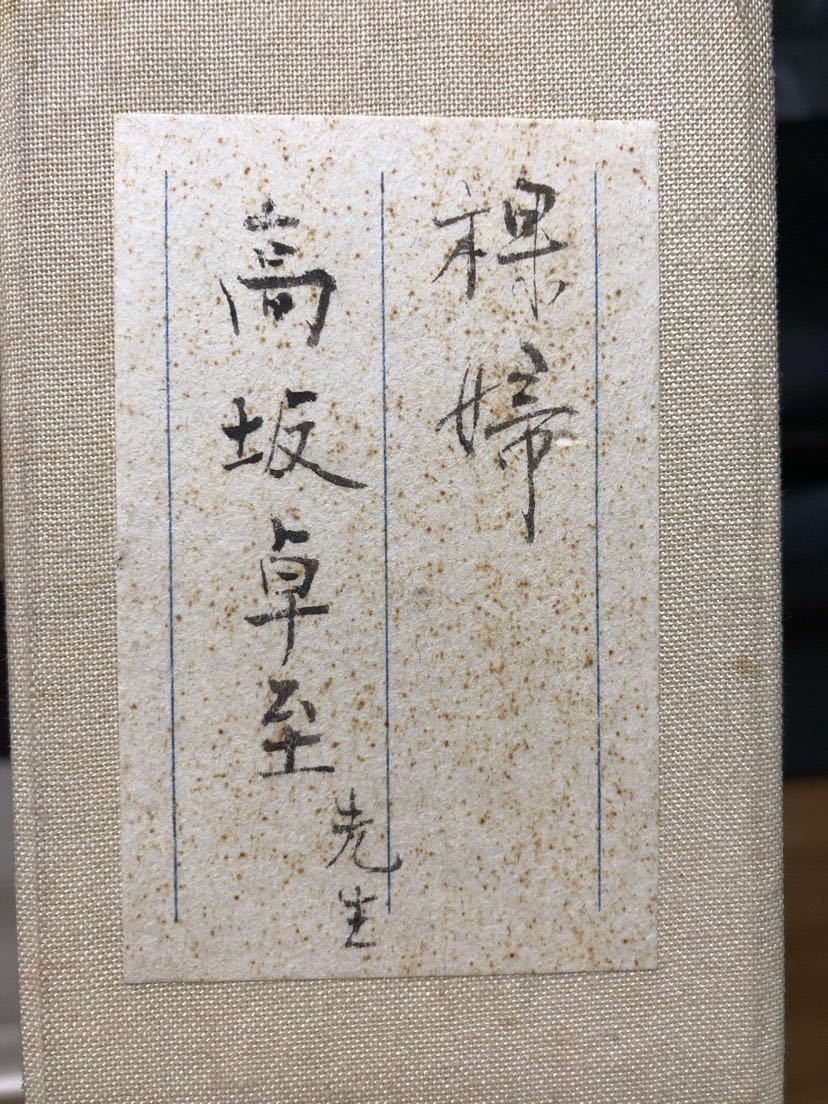 裸婦
高坂卓至先生